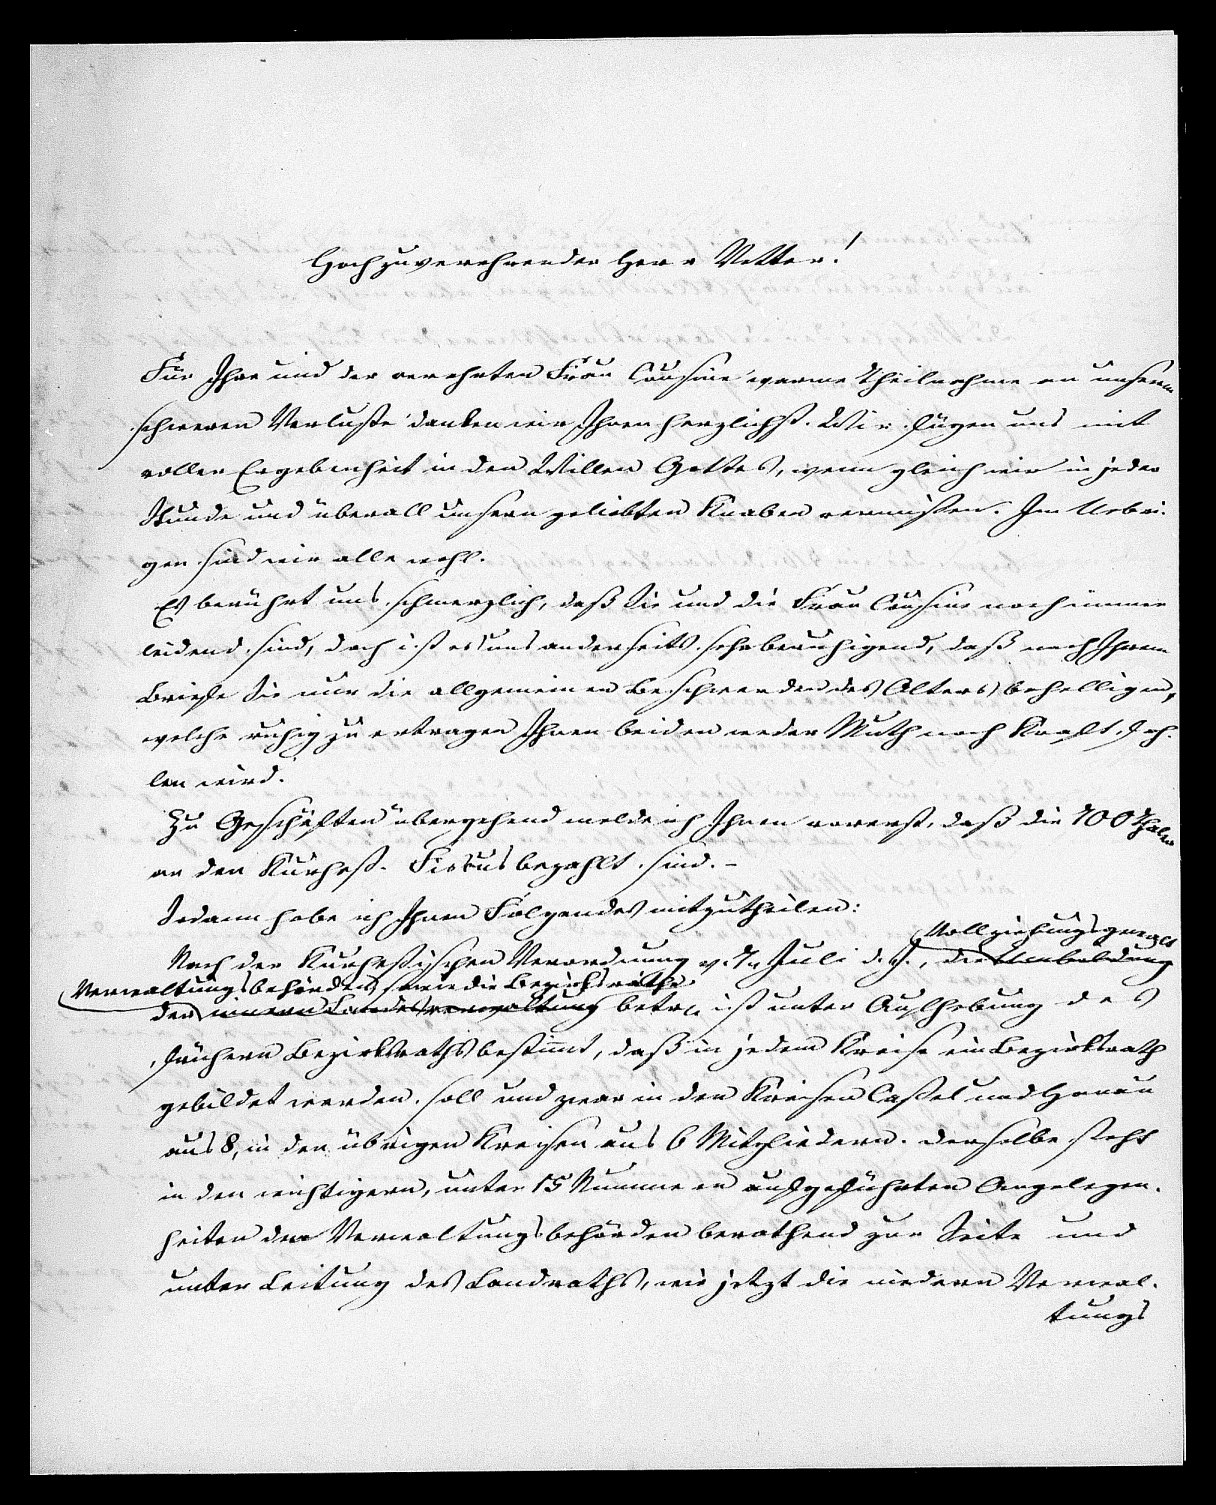 Hochzuverehrender Herr Vetter!
Für Ihre und der verehrten Frau Cousine warme Theilnahme an unserm
schweren Verluste danken wir Ihnen herzlichst. Wir fügen uns mit
voller Ergebenheit in den Willen Gottes, wenn gleich wir in jeder
Stunde und überall unsern geliebten Knaben vermißen. Im Uebri-
gen sind wir alle wohl.
Es berührt uns schmerzlich, daß Sie und die Frau Cousine noch immer
leidend sind, doch ist es uns anderseits sehr beruhigend, daß nach Ihrem
Briefe Sie nur die allgemeinen Beschwerden des Alters behelligen,
welche ruhig zu ertragen Ihnen beiden weder Muth noch Kraft feh-
len wird.
Zu Geschäften übergehend melde ich Ihnen vorerst, daß die 700 Thaler
an den Kurhess. Fiskus bezahlt sind. -
Sodann habe ich Ihnen Folgendes mitzutheilen:
Vollziehungsgewalt
Nach der Kurhessischen Verordnung v. 7n Juli d. J., die Umbildung
Verwaltungsbehörden sowie die Bezirksräthe
der innern Landesverwaltung betr., ist unter Aufhebung des
frühern Bezirksraths bestimmt, daß in jedem Kreise ein Bezirksrath
gebildet werden soll und zwar in den Kreisen Cassel und Hanau
aus 8, in den übrigen Kreisen aus 6 Mitgliedern. Derselbe steht
in den wichtigern, unter 15 Nummern aufgeführten Angelegen-
heiten den Verwaltungsbehörden berathend zur Seite und
unter Leitung des Landraths, wie jetzt die niedern Verwal-
tungs